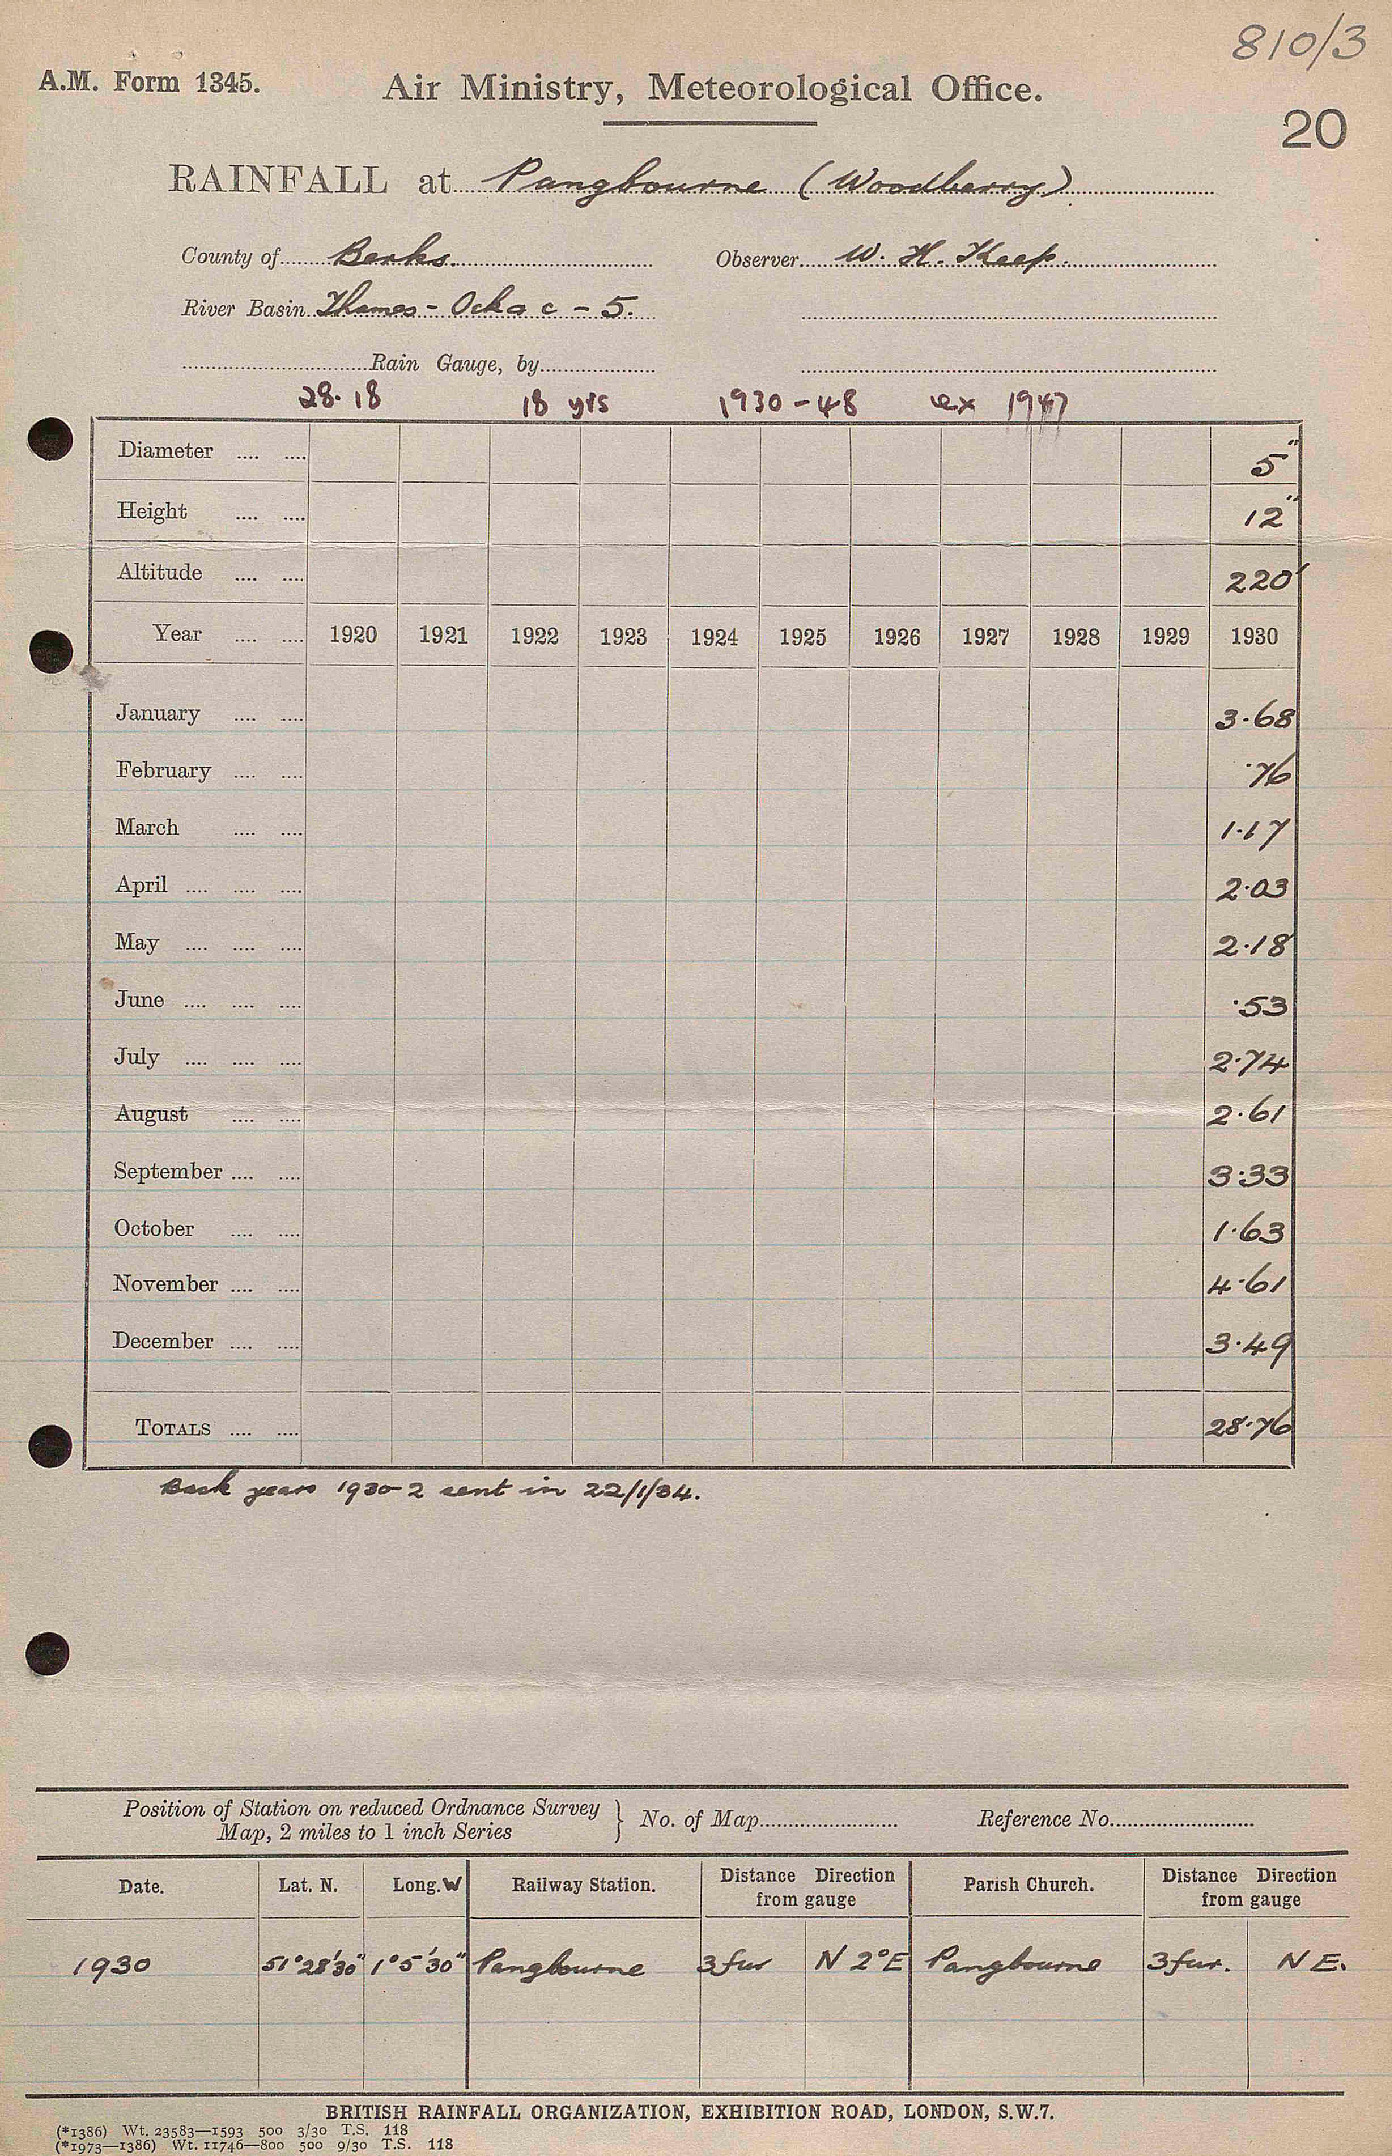 810/3
A.M. Form 1345. Air Ministry, Meteorological Office.
20
RAINFALL at Pangbourne (Woodberry)
County of Berks Observer W. H. Keep.
River Basin Thames - Ock a c - 5.
Rain Gauge, by
28.18 18 yrs 1930-48 ex 1947
Diameter .... .... 5"
Height .... .... 12"
Altitude .... .... 220'
Year .... .... 1920 1921 1922 1923 1924 1925 1926 1927 1928 1929 1930
January .... .... 3.68
February .... .... .76
March .... .... 1.17
April .... .... .... 2.03
May .... .... .... 2.18
June .... .... .... .53
July .... .... .... 2.74
August .... .... 2.61
September .... .... 3.33
October .... .... 1.63
November .... .... 4.61
December .... .... 3.49
TOTALS .... .... 28.76
Back years 1930-2 sent in 22/1/34.
Position of Station on reduced Ordnance Survey
Map, 2 miles to 1 inch Series } No. of Map Reference No.
Date. Lat. N. Long. W Railway Station. Distance Direction from gauge Parish Church. Distance Direction from gauge
1930 51°28'30" 1°5'30" Pangbourne 3 fur N 2°E Pangbourne 3 fur. N E.
BRITISH RAINFALL ORGANIZATION, EXHIBITION ROAD, LONDON, S.W.7.
(*1386) Wt. 23583—1593 500 3/30 T.S. 118
(*1973—1386) Wt. 11746—800 500 9/30 T.S. 118